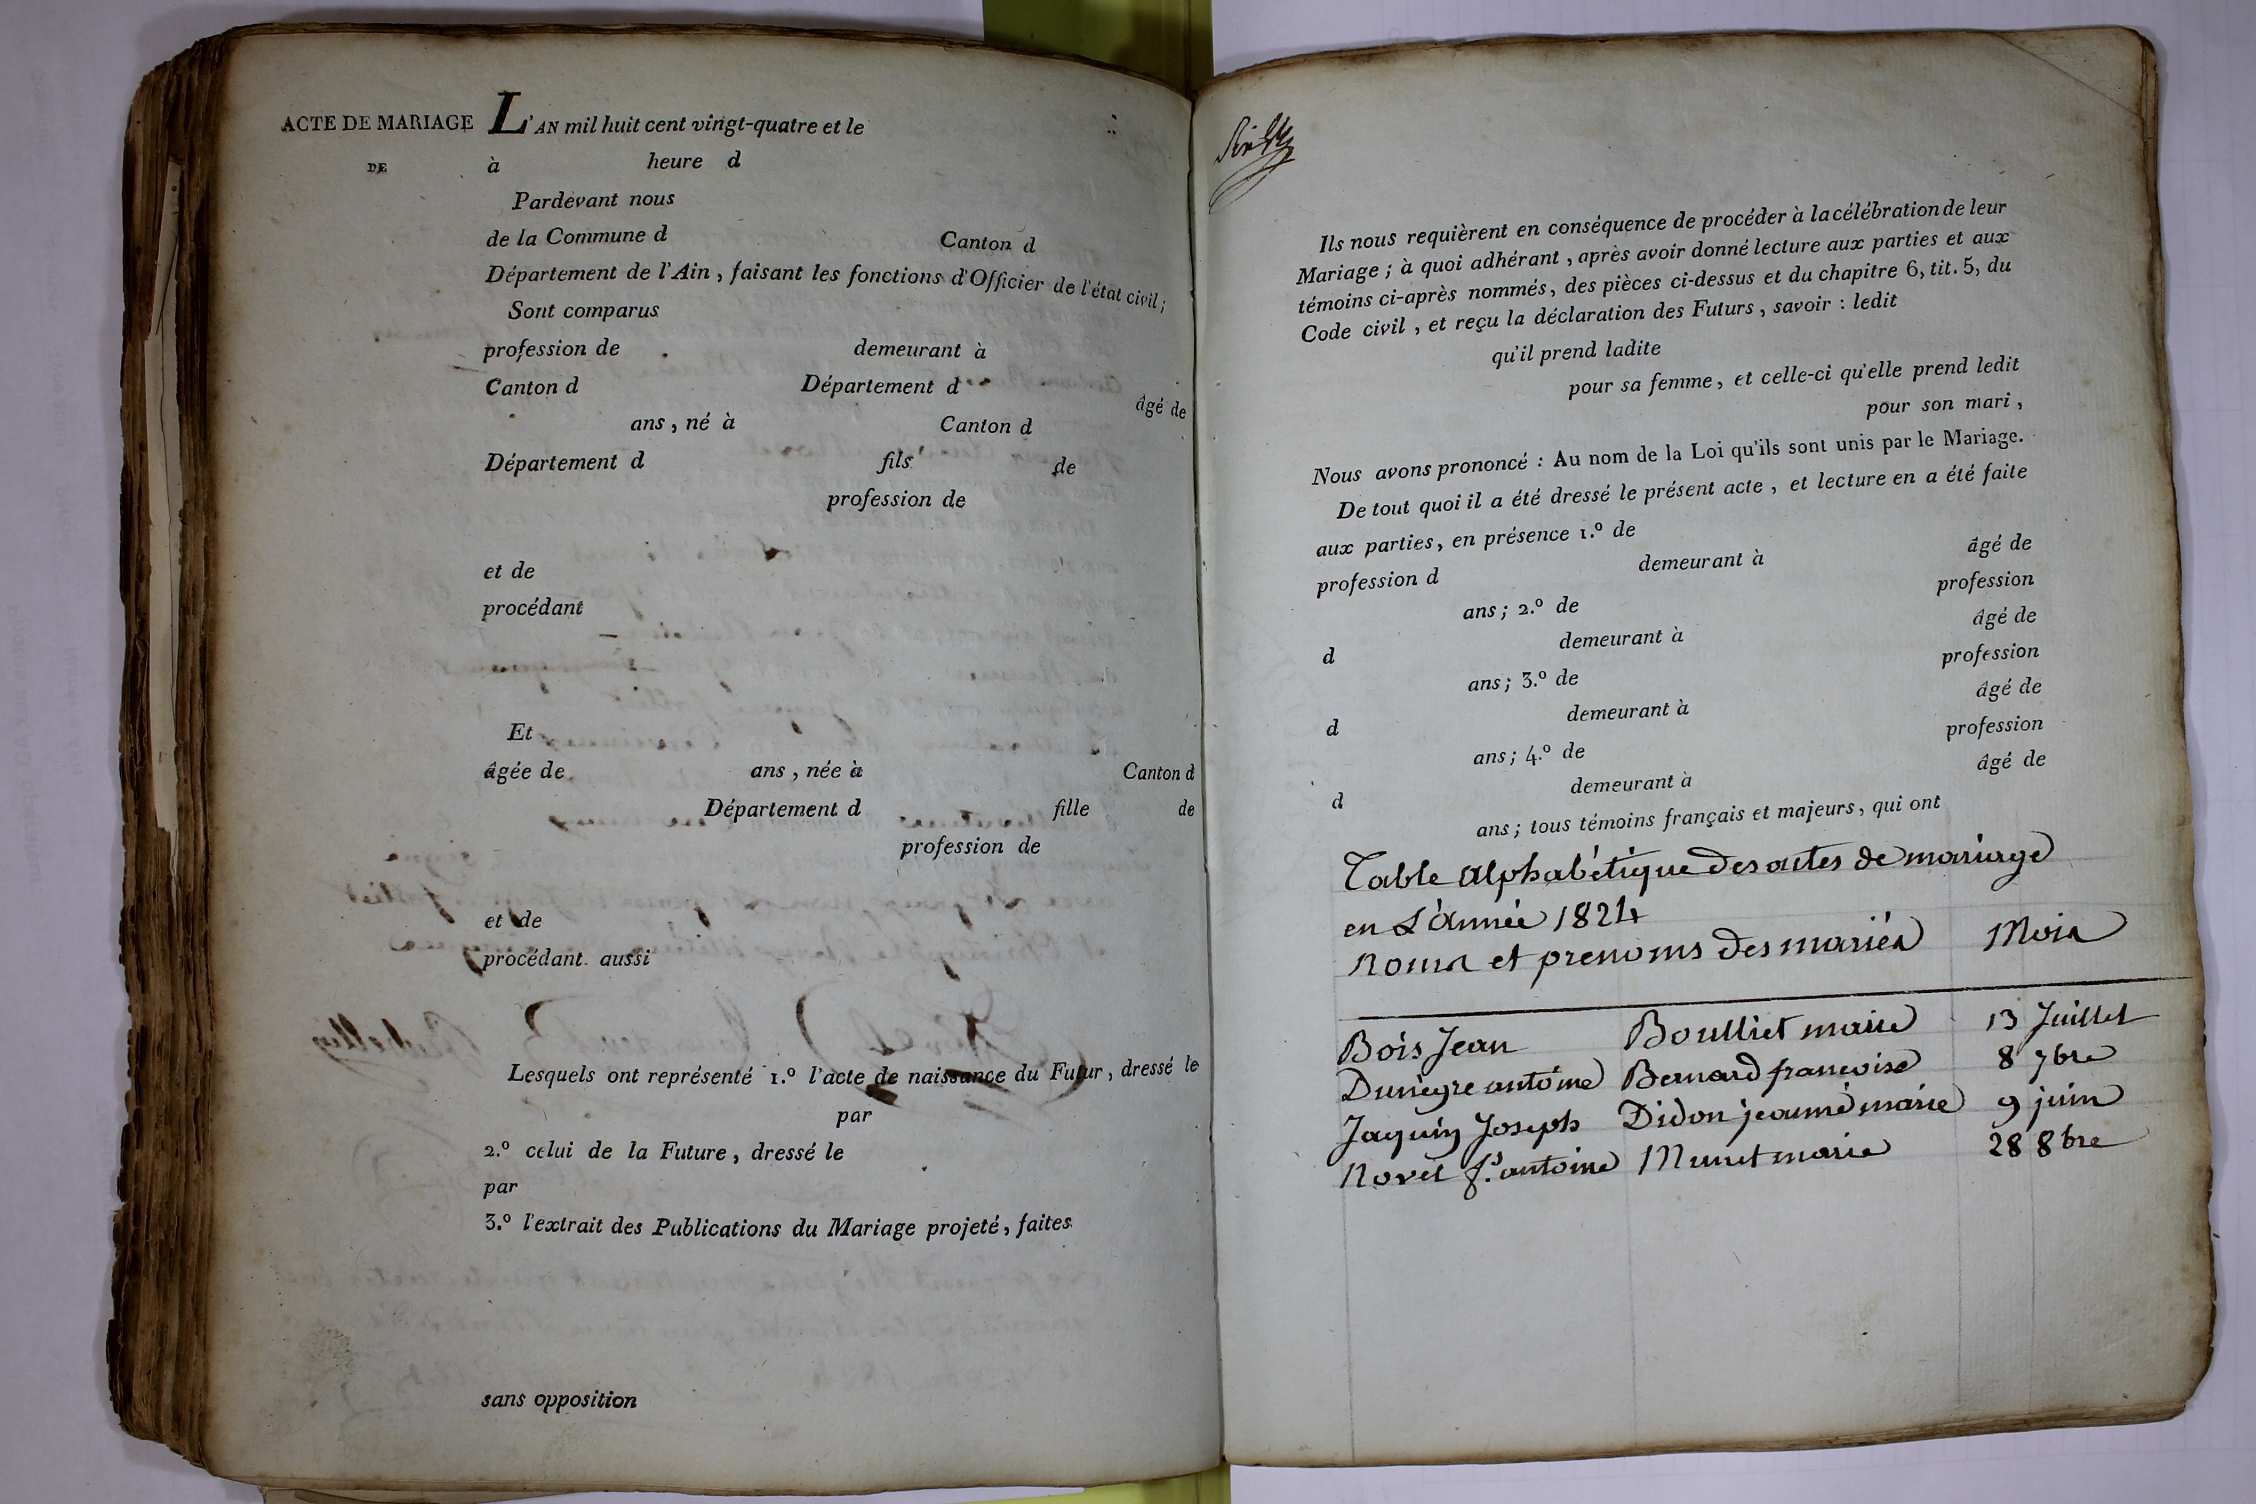 ACTE DE MARIAGE
DE
L'AN mil huit cent vingt-quatre et le
à heure d
Pardevant nous
de la Commune d Canton d
Département de l'Ain, faisant les fonctions d'Officier de l'état civil;
Sont comparus
profession de demeurant à
Canton d Département d âgé de
ans, né à Canton d
Département d fils de
profession de
et de
procédant
Et
âgée de ans, née à Canton d
Département d fille de
profession de
et de
procédant aussi
Lesquels ont représenté 1.º l'acte de naissance du Futur, dressé le
par
2.º celui de la Future, dressé le
par
3.º l'extrait des Publications du Mariage projeté, faites
sans opposition
Ils nous requièrent en conséquence de procéder à la célébration de leur
Mariage; à quoi adhérant, après avoir donné lecture aux parties et aux
témoins ci-après nommés, des pièces ci-dessus et du chapitre 6, tit. 5, du
Code civil, et reçu la déclaration des Futurs, savoir : ledit
qu'il prend ladite
pour sa femme, et celle-ci qu'elle prend ledit
pour son mari,
Nous avons prononcé : Au nom de la Loi qu'ils sont unis par le Mariage.
De tout quoi il a été dressé le présent acte, et lecture en a été faite
aux parties, en présence 1.º de
profession d demeurant à âgé de
ans; 2.º de profession
d demeurant à âgé de
ans; 3.º de profession
d demeurant à âgé de
ans; 4.º de profession
d demeurant à âgé de
ans; tous témoins français et majeurs, qui ont
Table alphabétique des actes de mariage
en L'année 1824
Noms et prenoms des mariés Mois
Bois Jean Boulliet marie 13 Juillet
Dunègre antoine Bernard francoise 8 7bre
Jaquin Joseph Didon jeanne marie 9 juin
Novet f.s antoine Munet marie 28 8bre